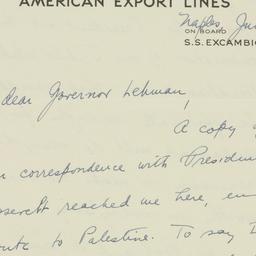 AMERICAN EXPORT LINES
Naples, Jun
ON BOARD
S.S. EXCAMBIO
dear Governor Lehman,
A copy
correspondence with Presiden
reached me here, en
to Palestine. To say I